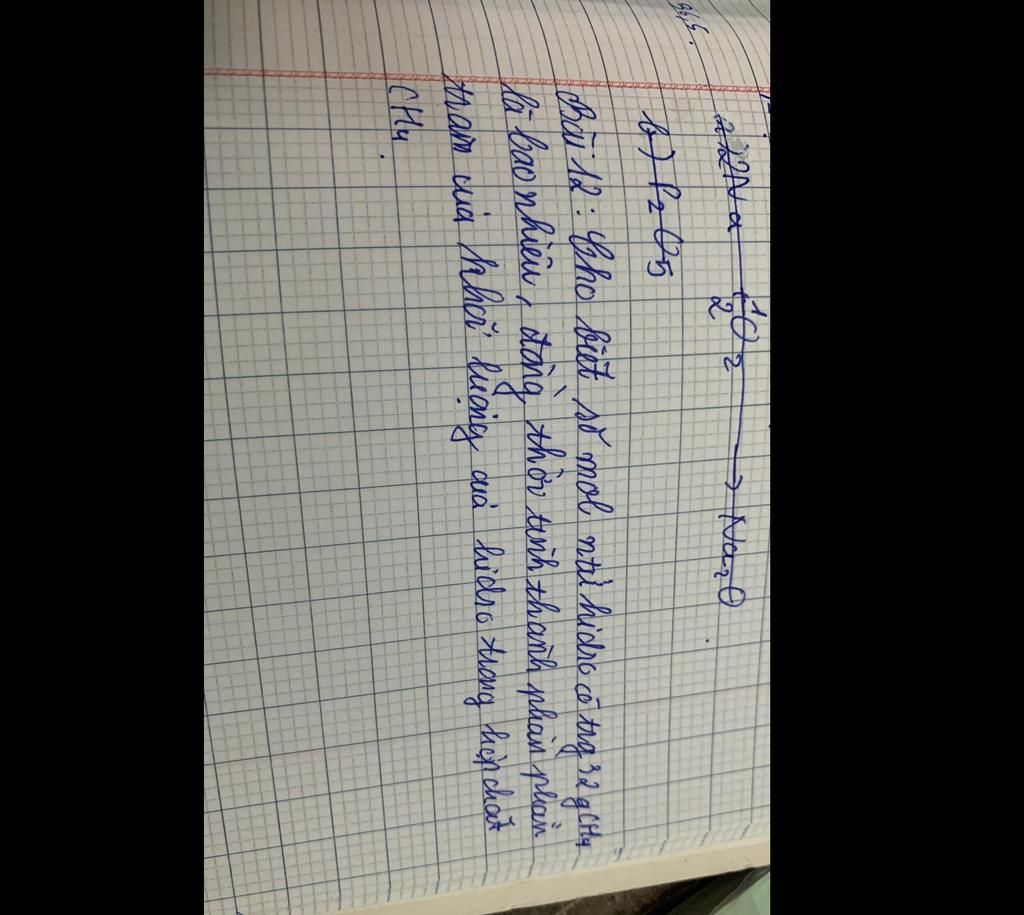 96,5.
2Na + 1/2 O2 → Na2O
b) P2O5
Bài 12: Cho biết số mol ntử hidro có trg 32g CH4
là bao nhiêu, đồng thời tính thành phần phần
trăm của khối lượng của hidro trong hợp chất
CH4.